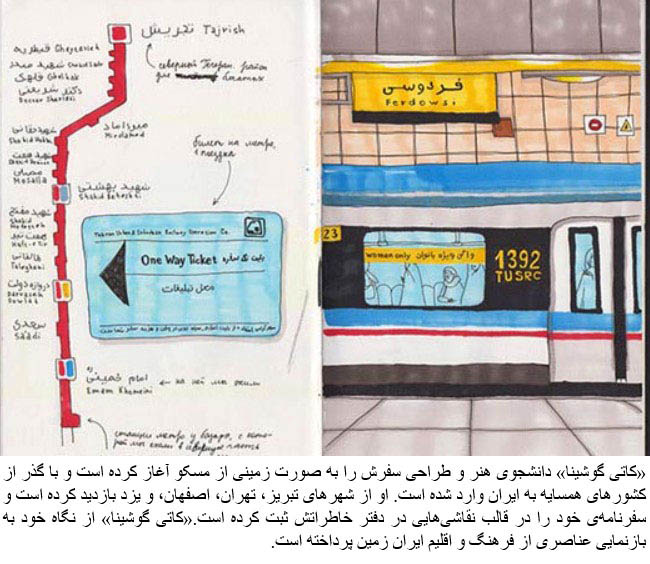 تجریش Tajrish
قیطریه Gheytarieh
شهید صدر
قلهک Gholhak
دکتر شریعتی
Doctor Shariati
северный Тегеран. район
для богатых
میرداماد
Mirdamad
شهید حقانی
Shahid Haghani
شهید همت
مصلی
Mosalla
билет на метро,
1 поездка
شهید بهشتی
Shahid Beheshti
شهید مفتح
Shahid
هفت تیر
Haft-e Tir
طالقانی
Taleghani
دروازه دولت
Darvazeh
Dowlat
سعدی
Sa'adi
Tehran Urban & Suburban Railway Operation Co.
One Way Ticket بلیت تک سفره
محل تبلیغات
امام خمینی
Emam Khomeini
← на ней мы жили
станция метро у базара, с кото-
рой мы ехали в
فردوسی
Ferdowsi
23
women only واگن ویژه بانوان
1392
TUSRC
«کاتی گوشینا» دانشجوی هنر و طراحی سفرش را به صورت زمینی از مسکو آغاز کرده است و با گذر از
کشورهای همسایه به ایران وارد شده است. او از شهرهای تبریز، تهران، اصفهان، و یزد بازدید کرده است و
سفرنامه‌ی خود را در قالب نقاشی‌هایی در دفتر خاطراتش ثبت کرده است.«کاتی گوشینا» از نگاه خود به
بازنمایی عناصری از فرهنگ و اقلیم ایران زمین پرداخته است.